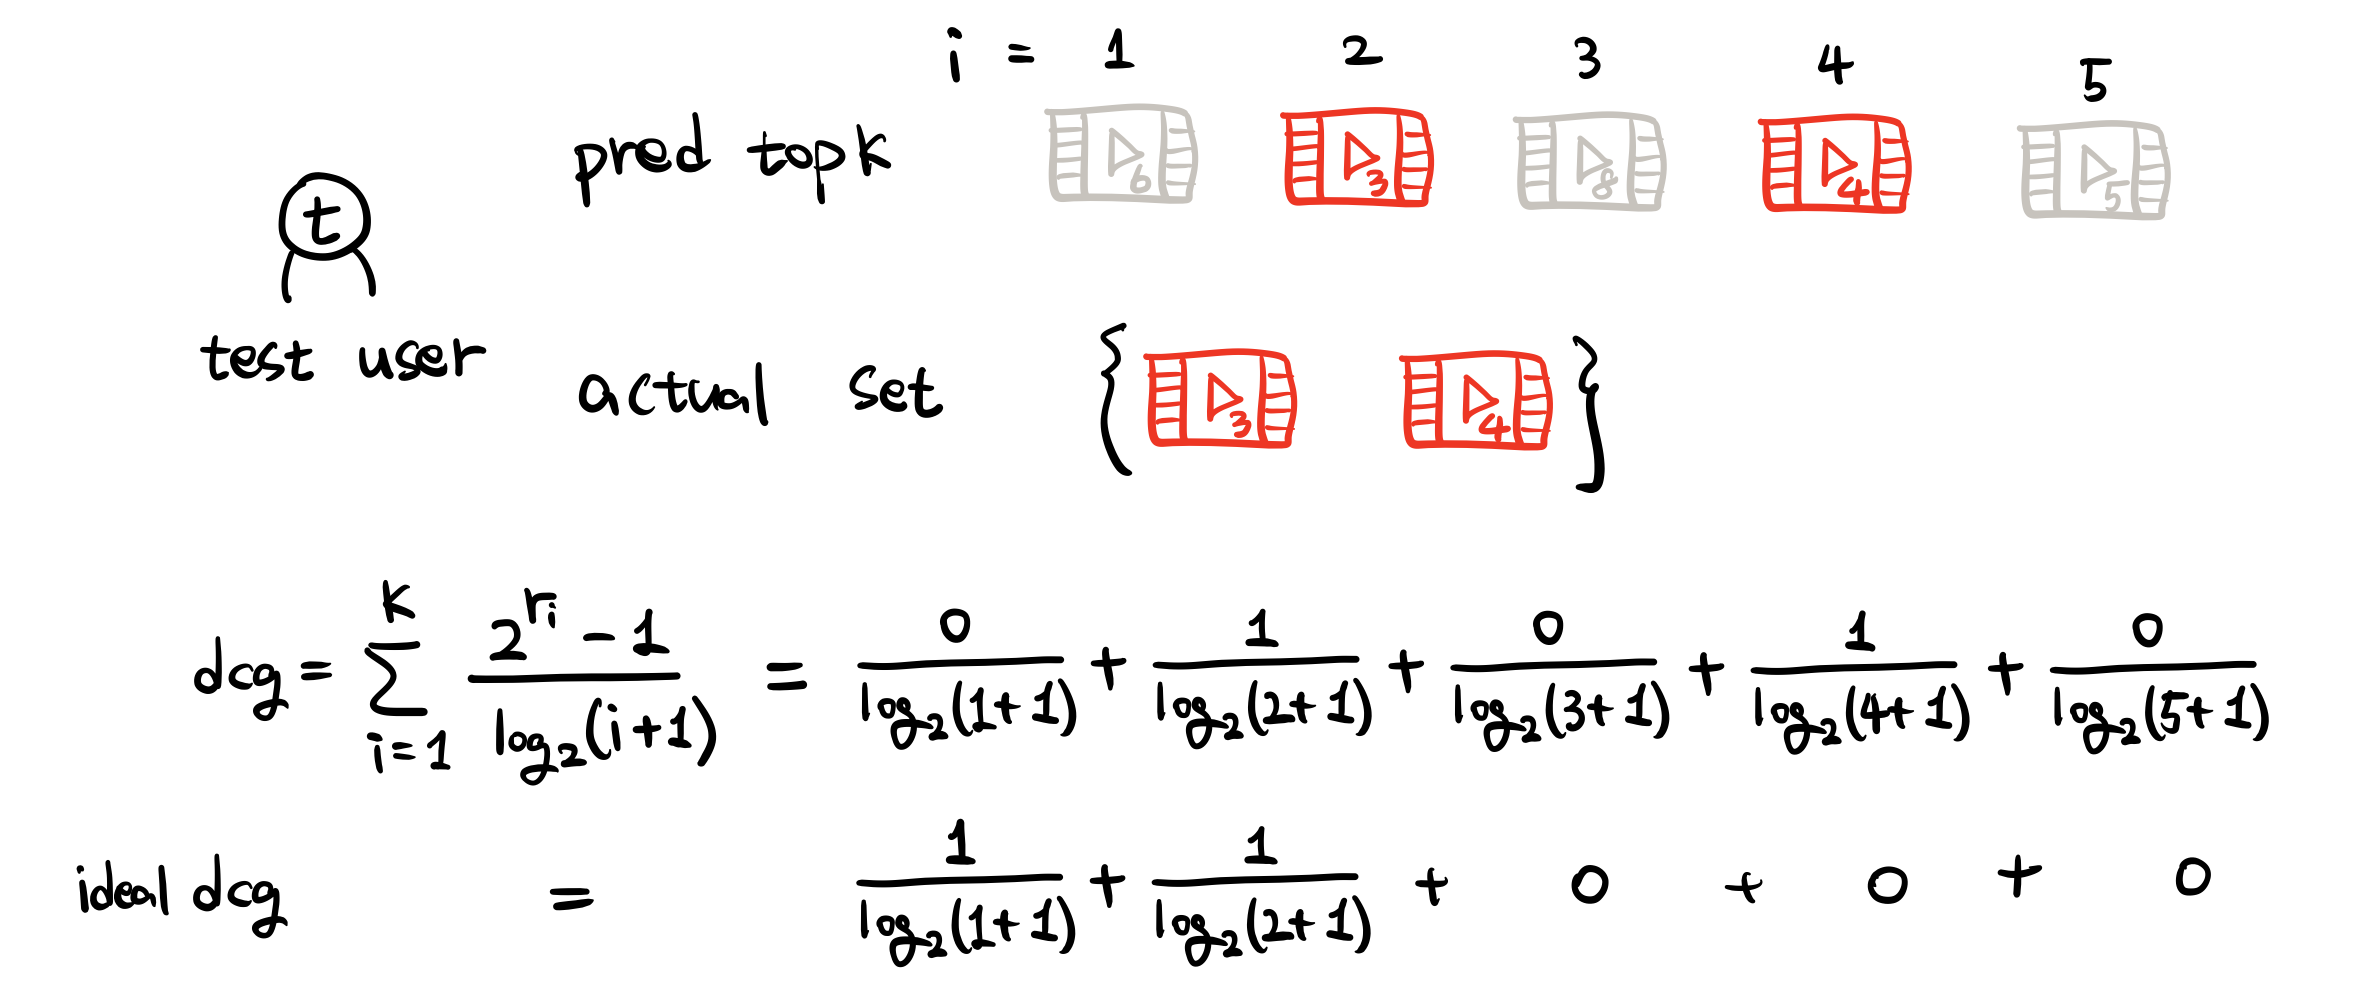 i = 1 2 3 4 5
pred topk 6 3 8 4 5
t
test user
actual set { 3 4 }
dcg = \sum_{i=1}^{K} \frac{2^{r_i} - 1}{log_2(i+1)} = \frac{0}{log_2(1+1)} + \frac{1}{log_2(2+1)} + \frac{0}{log_2(3+1)} + \frac{1}{log_2(4+1)} + \frac{0}{log_2(5+1)}
ideal dcg = \frac{1}{log_2(1+1)} + \frac{1}{log_2(2+1)} + 0 + 0 + 0